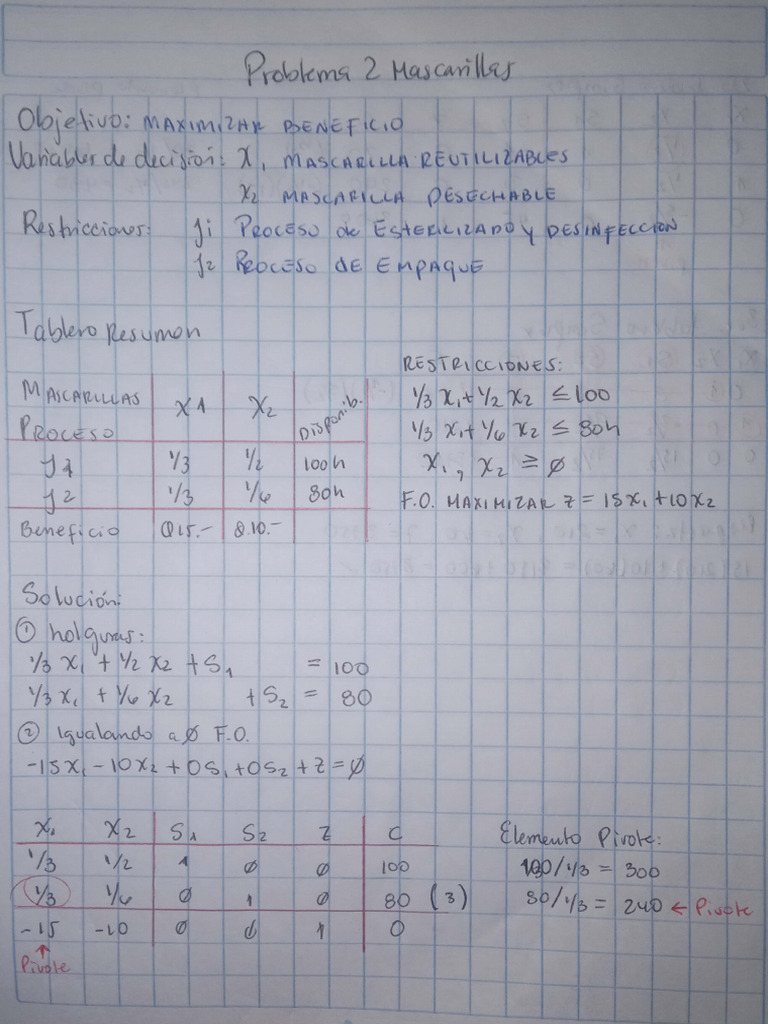 Problema 2 Mascarillas
Objetivo: MAXIMIZAR BENEFICIO
Variables de decision: X1 MASCARILLA REUTILIZABLES
X2 MASCARILLA DESECHABLE
Restricciones: y1 PROCESO de ESTERILIZADO y DESINFECCION
y2 PROCESO DE EMPAQUE
Tablero Resumen
MASCARILLAS X1 X2 Disponib.
PROCESO
y1 1/3 1/2 100h
y2 1/3 1/6 80h
Beneficio Q15.- Q.10.-
RESTRICCIONES:
1/3 X1 + 1/2 X2 ≤ 100
1/3 X1 + 1/6 X2 ≤ 80h
X1, X2 ≥ Ø
F.O. MAXIMIZAR Z = 15X1 + 10X2
Solución:
① holguras:
1/3 X1 + 1/2 X2 + S1 = 100
1/3 X1 + 1/6 X2 + S2 = 80
② Igualando a Ø F.O.
-15X1 - 10X2 + 0S1 + 0S2 + Z = Ø
X1 X2 S1 S2 Z C
1/3 1/2 1 Ø Ø 100
1/3 1/6 Ø 1 Ø 80 (3)
-15 -10 Ø Ø 1 0
Pivote
Elemento Pivote:
100/1/3 = 300
80/1/3 = 240 ← Pivote